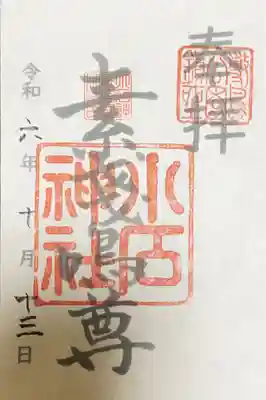 奉拝
素戔嗚尊
小石神社
令和六年十月十三日